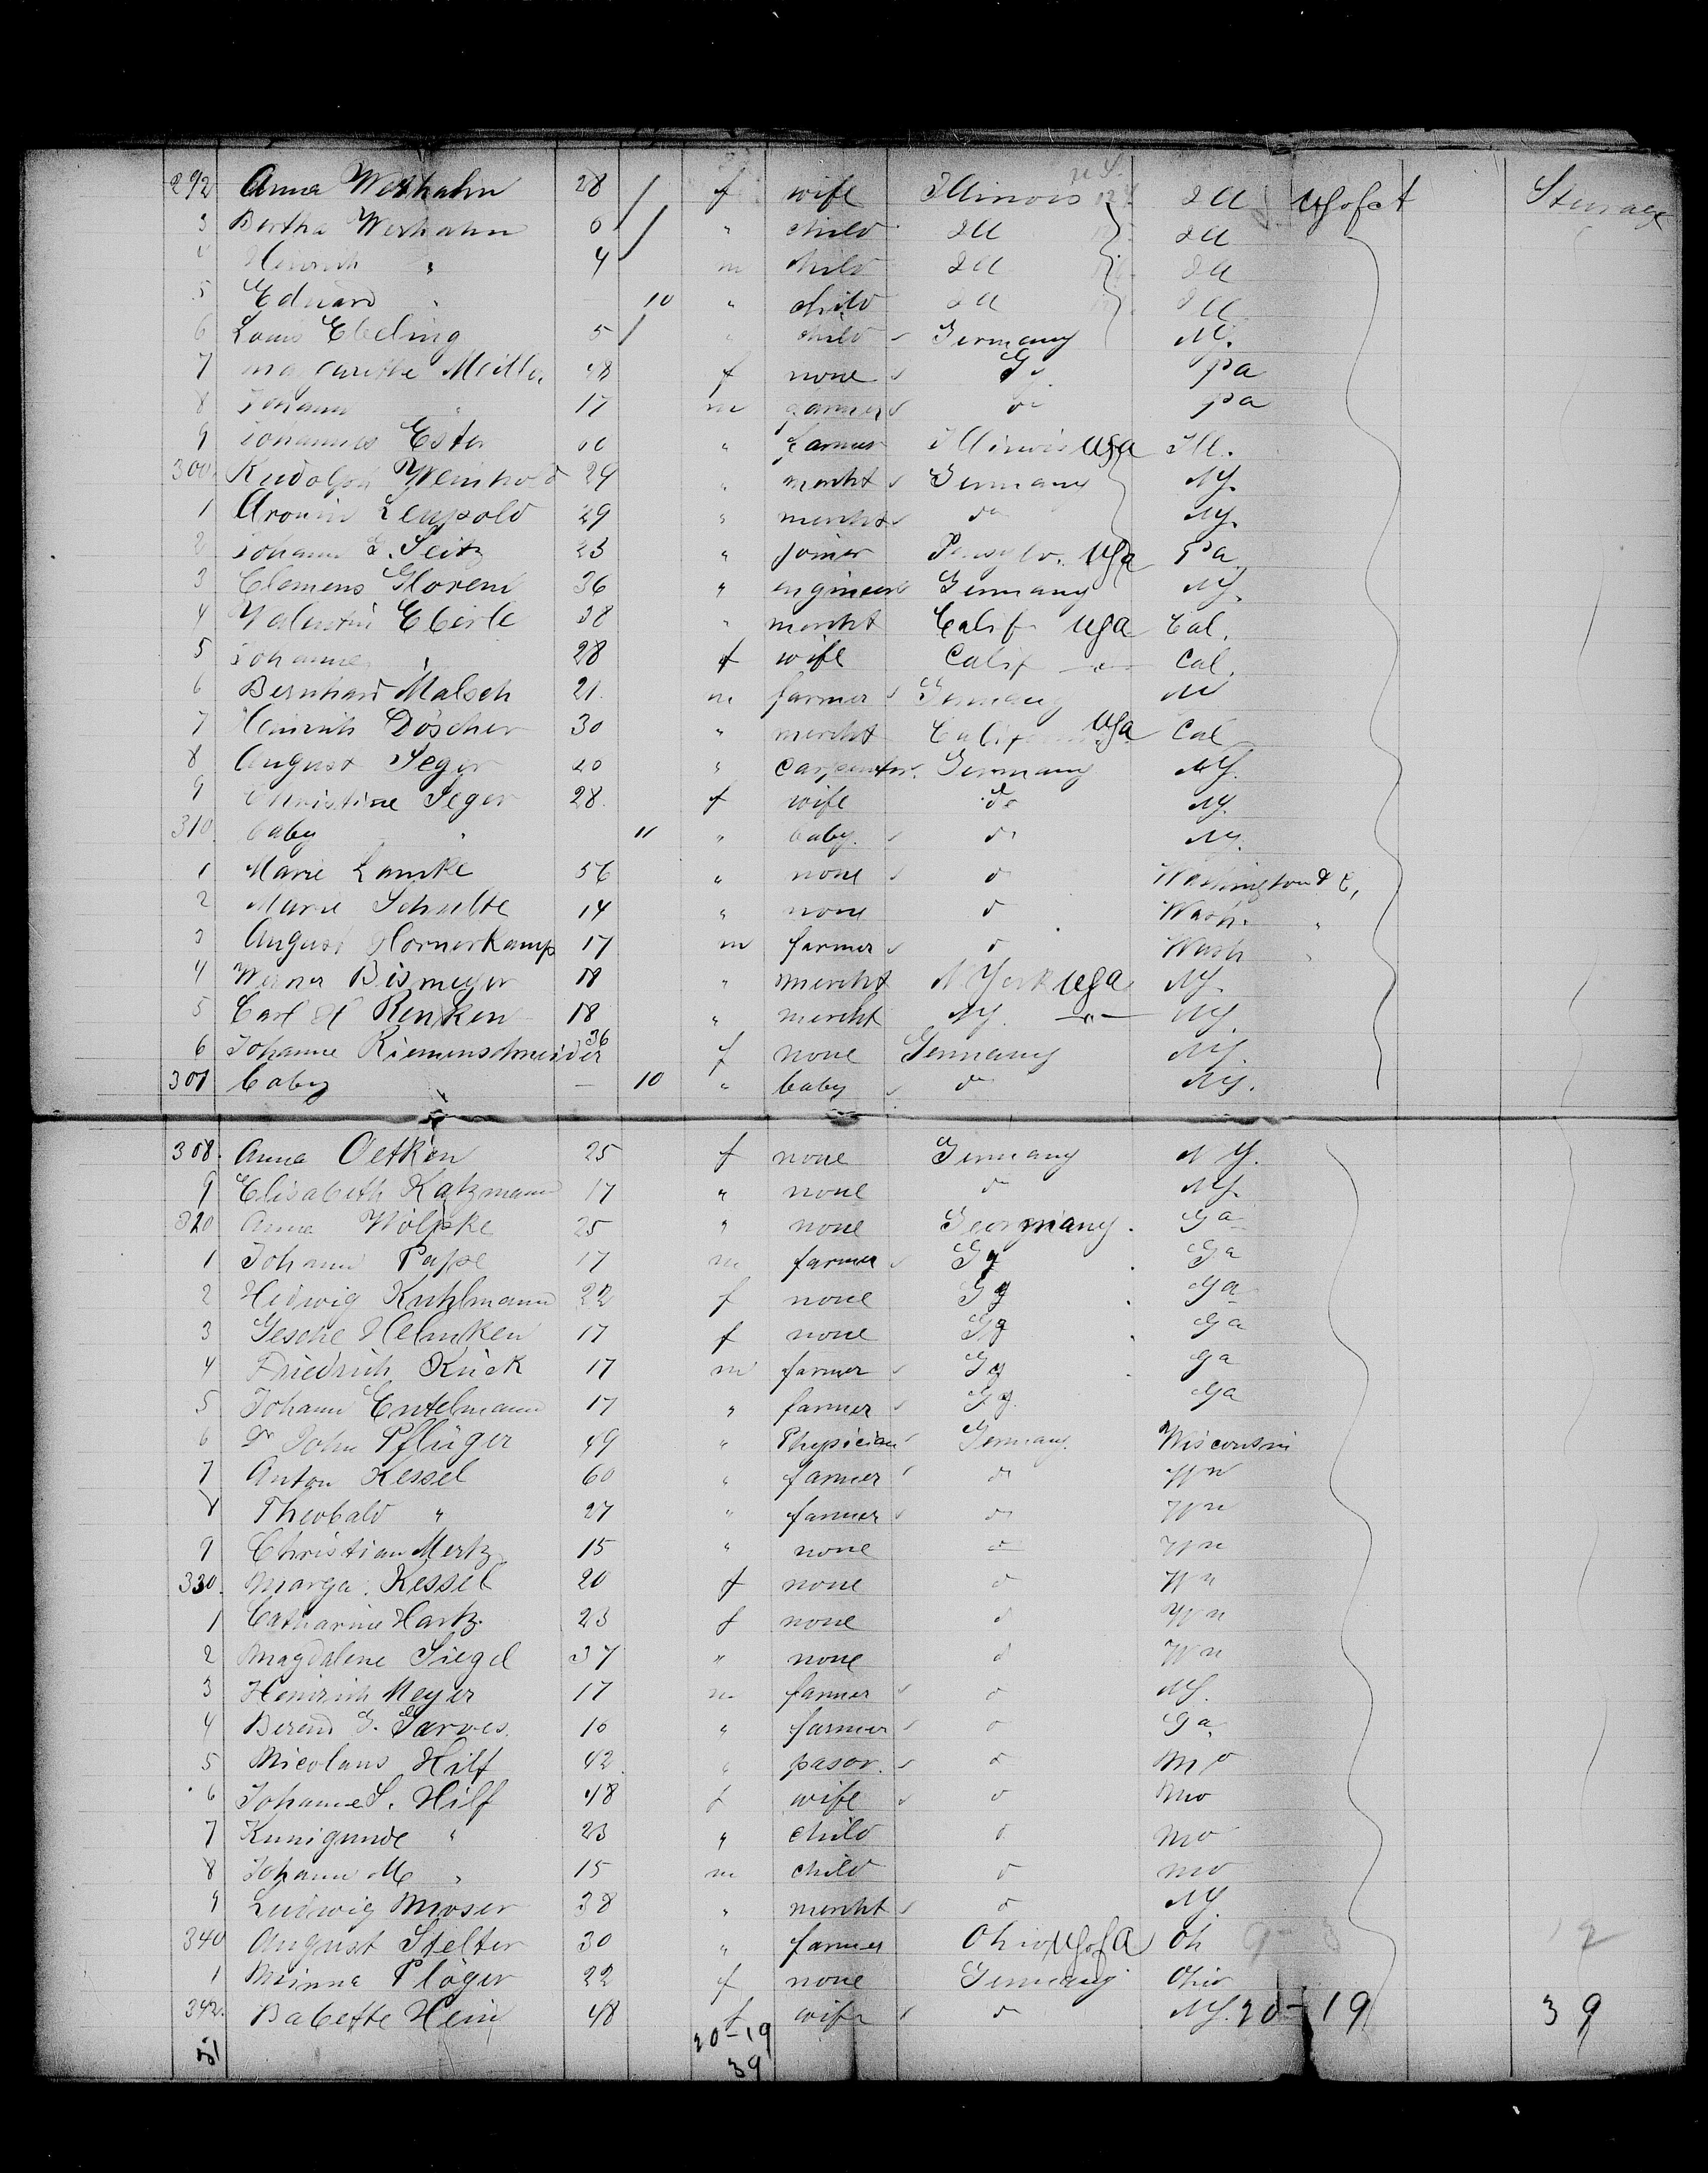 292 Anna Werhahn 28 / f wife Illinois Ill U S of A Steerage
3 Bertha Werhahn 6 / " child Ill Ill
4 Heinrich " 4 / m child Ill Ill
5 Eduard " 10 " child Ill Ill
6 Louis Ebeling 5 / " child Germany NY.
7 Margarethe 48 f none Gy. pa
8 Johann " 17 m farmer do pa
9 Johannes Ester " farmer Illinois USA Ill.
300. Rudolph Weinhold 24 " mercht Germany NY.
1 Leupold 29 " mercht do NY.
2 Johann E. Seitz 23 " joiner Pensylv. USA Pa
3 Clemens 36 " engineer Germany NY.
4 Valentin Eberle 38 " mercht Calif USA Cal.
5 Johanne " 28 f wife Calif —"— Cal.
6 Bernhard Malsch 21. m farmer Germany NY
7 Heinrich Döscher 30 " mercht Calif USA Cal
8 August Seger 20 " carpenter. Germany NY.
9 Christine Seger 28. f wife do NY.
310. baby " 11 " baby. do NY.
1 Marie Lamke 56 " none do Washington D C,
2 Marie Schulte 14 " none do Wash. "
3 August Hornerkamp 17 m farmer do Wash "
4 Werner Bismeyer 18 " mercht N York USA NY.
5 Carl H Renken 18 " mercht NY. —"— NY.
6 Johanne Riemenschneider 36 f none Germany NY.
307 baby " — 10 " baby do NY.
308. Anna Oetken 25 f none Germany N Y.
9 Elisabeth Katzmann 17 " none do NY.
320 Anna Wölpke 25 " none Germany. Ga
1 Johann Pape 17 m farmer Gy Ga
2 Hedwig Kuhlmann 22 f none Gy Ga
3 Gesche Helmken 17 f none Gy Ga
4 Friedrich Kück 17 m farmer Gy Ga
5 Johann Entelmann 17 " farmer Gy. Ga
6 Dr John Pflüger 49 " Physician Germany. Wisconsin
7 Anton Kessel 60 " farmer do Wn
8 Theobald " 27 " farmer do Wn
9 Christian Mertz 15 " none do Wn
330. Marga. Kessel 20 f none do Wn
1 Catharine Hartz. 23 f none do Wn
2 Magdalene Siegel 37 " none do Wn
3 Heinrich Meyer 17 m farmer do NY.
4 Berend G. Garves. 16 " farmer do Ga.
5 Nicolaus Hilf 42 " pasor. do Mo
6 Johanne S. Hilf 48 f wife do Mo
7 Kunigunde " 23 " child do Mo
8 Johann M " 15 m child do Mo
9 Ludwig Moser 38 " mercht do NY.
340 August Stelter 30 " farmer Ohio US of A Oh 12
1 Minna Plöger 22 f none Germany Ohio
342. Babette Hein 48 f wife do NY. 20-19 39
51 20-19
39